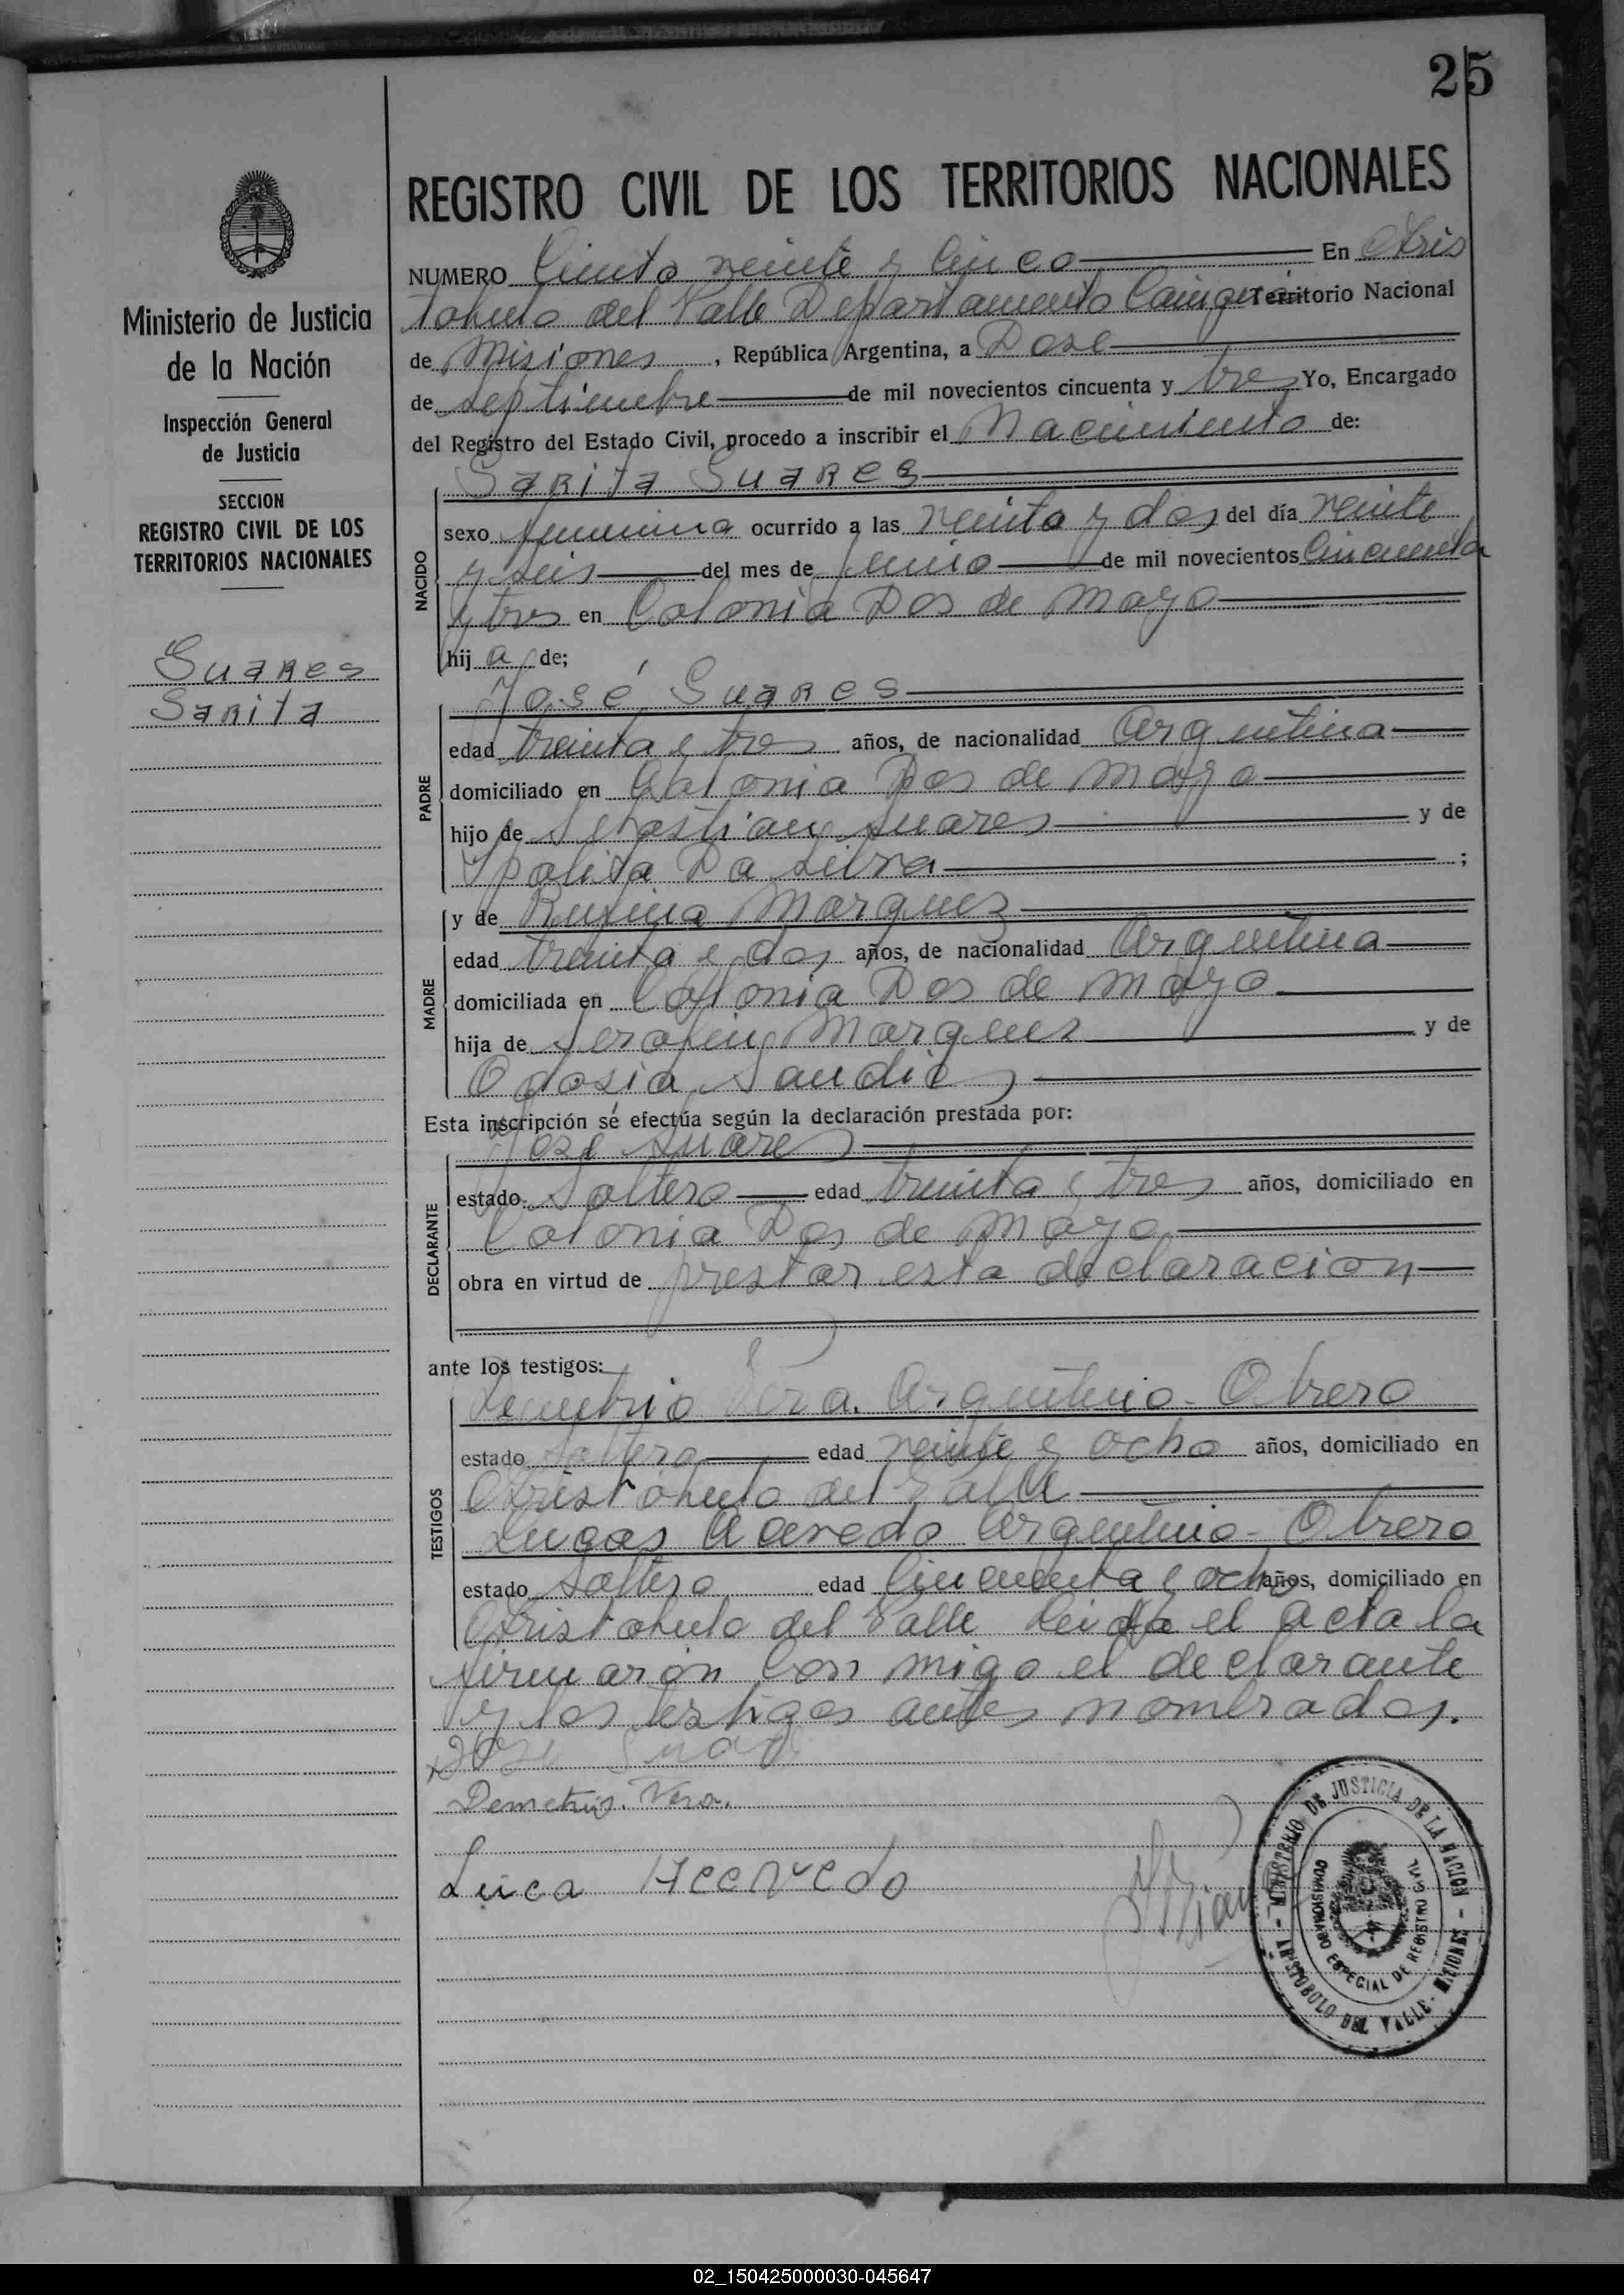 25
REGISTRO CIVIL DE LOS TERRITORIOS NACIONALES
Ministerio de Justicia
de la Nación
Inspección General
de Justicia
SECCION
REGISTRO CIVIL DE LOS
TERRITORIOS NACIONALES
Suares
Sarita
NUMERO Ciento veinte y Cinco En Aris
tobulo del Valle Departamento Cainguá Territorio Nacional
de Misiones, República Argentina, a Dose
de septiembre de mil novecientos cincuenta y tres Yo, Encargado
del Registro del Estado Civil, procedo a inscribir el Nacimiento de:
Sarita Suares
NACIDO
sexo femenina ocurrido a las veinta y dos del día veinte
y seis del mes de Junio de mil novecientos Cincuenta
y tres en Colonia Dos de Mayo
hij a de;
José Suares
PADRE
edad treinta e tres años, de nacionalidad Argentina
domiciliado en Colonia Dos de Mayo
hijo de Sebastian Suares y de
Ypolita Da Silva ;
y de Rufina Marquez
MADRE
edad treinta e dos años, de nacionalidad Argentina
domiciliada en Colonia Dos de Mayo
hija de Serafin Marques y de
Esta inscripción sé efectúa según la declaración prestada por:
José Suares
DECLARANTE
estado Soltero edad treinta e tres años, domiciliado en
Colonia Dos de Mayo
obra en virtud de prestar esta declaracion
ante los testigos:
Demetrio Vera. Argentino - Obrero
TESTIGOS
estado Soltero edad veinte e ocho años, domiciliado en
Aristobulo del Valle
Lucas Acevedo Argentino - Obrero
estado Soltero edad Cincuenta e ocho años, domiciliado en
Aristobulo del Valle Leida el acta la
firmaron Con migo el declarante
y los testigos antes nombrados.
Jose
Demetrio. Vera.
Luca Acervedo
MINISTERIO DE JUSTICIA DE LA NACION
ESPECIAL DE REGISTRO CIVIL
ARISTOBOLO DEL VALLE - MISIONES
02_150425000030-045647